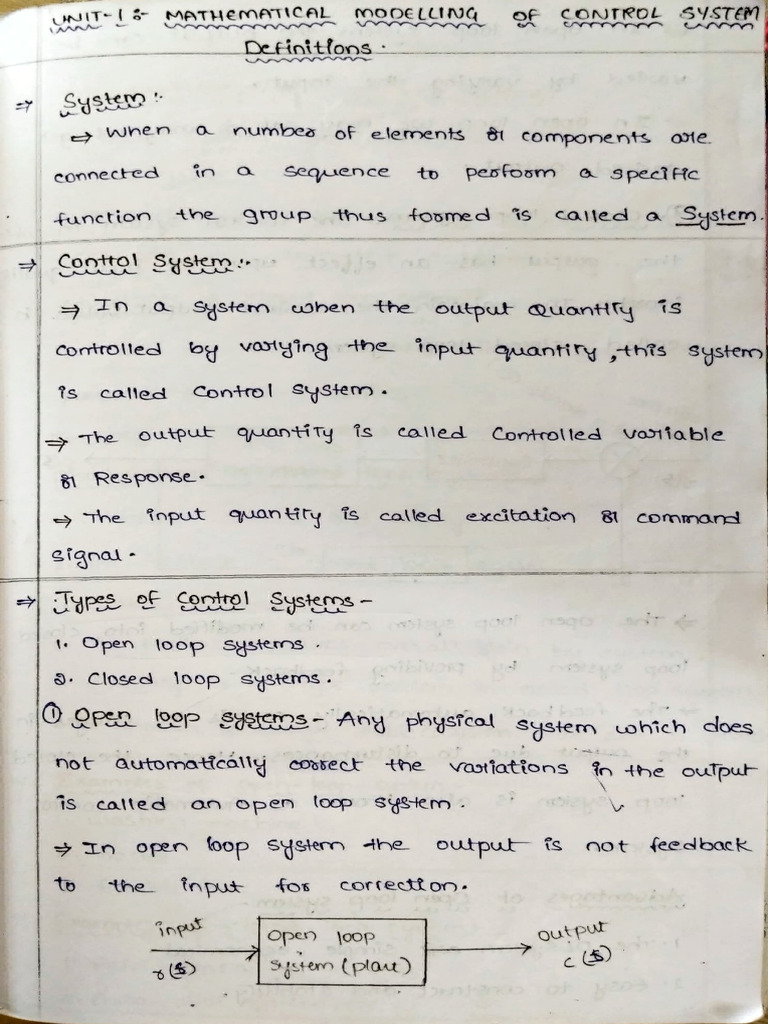 UNIT-1 :- MATHEMATICAL MODELLING OF CONTROL SYSTEM
Definitions.
⇒ System :-
⇒ When a number of elements or components are
connected in a sequence to perform a specific
function the group thus formed is called a System.
⇒ Control System :-
⇒ In a system when the output Quantity is
controlled by varying the input quantity, this system
is called Control system.
⇒ The output quantity is called Controlled variable
or Response.
⇒ The input quantity is called excitation or command
signal.
⇒ Types of Control Systems -
1. Open loop systems.
2. Closed loop systems.
① Open loop systems - Any physical system which does
not automatically correct the variations in the output
is called an open loop system.
⇒ In open loop system the output is not feedback
to the input for correction.
input
r(s)
Open loop
system (plant)
output
c(s)